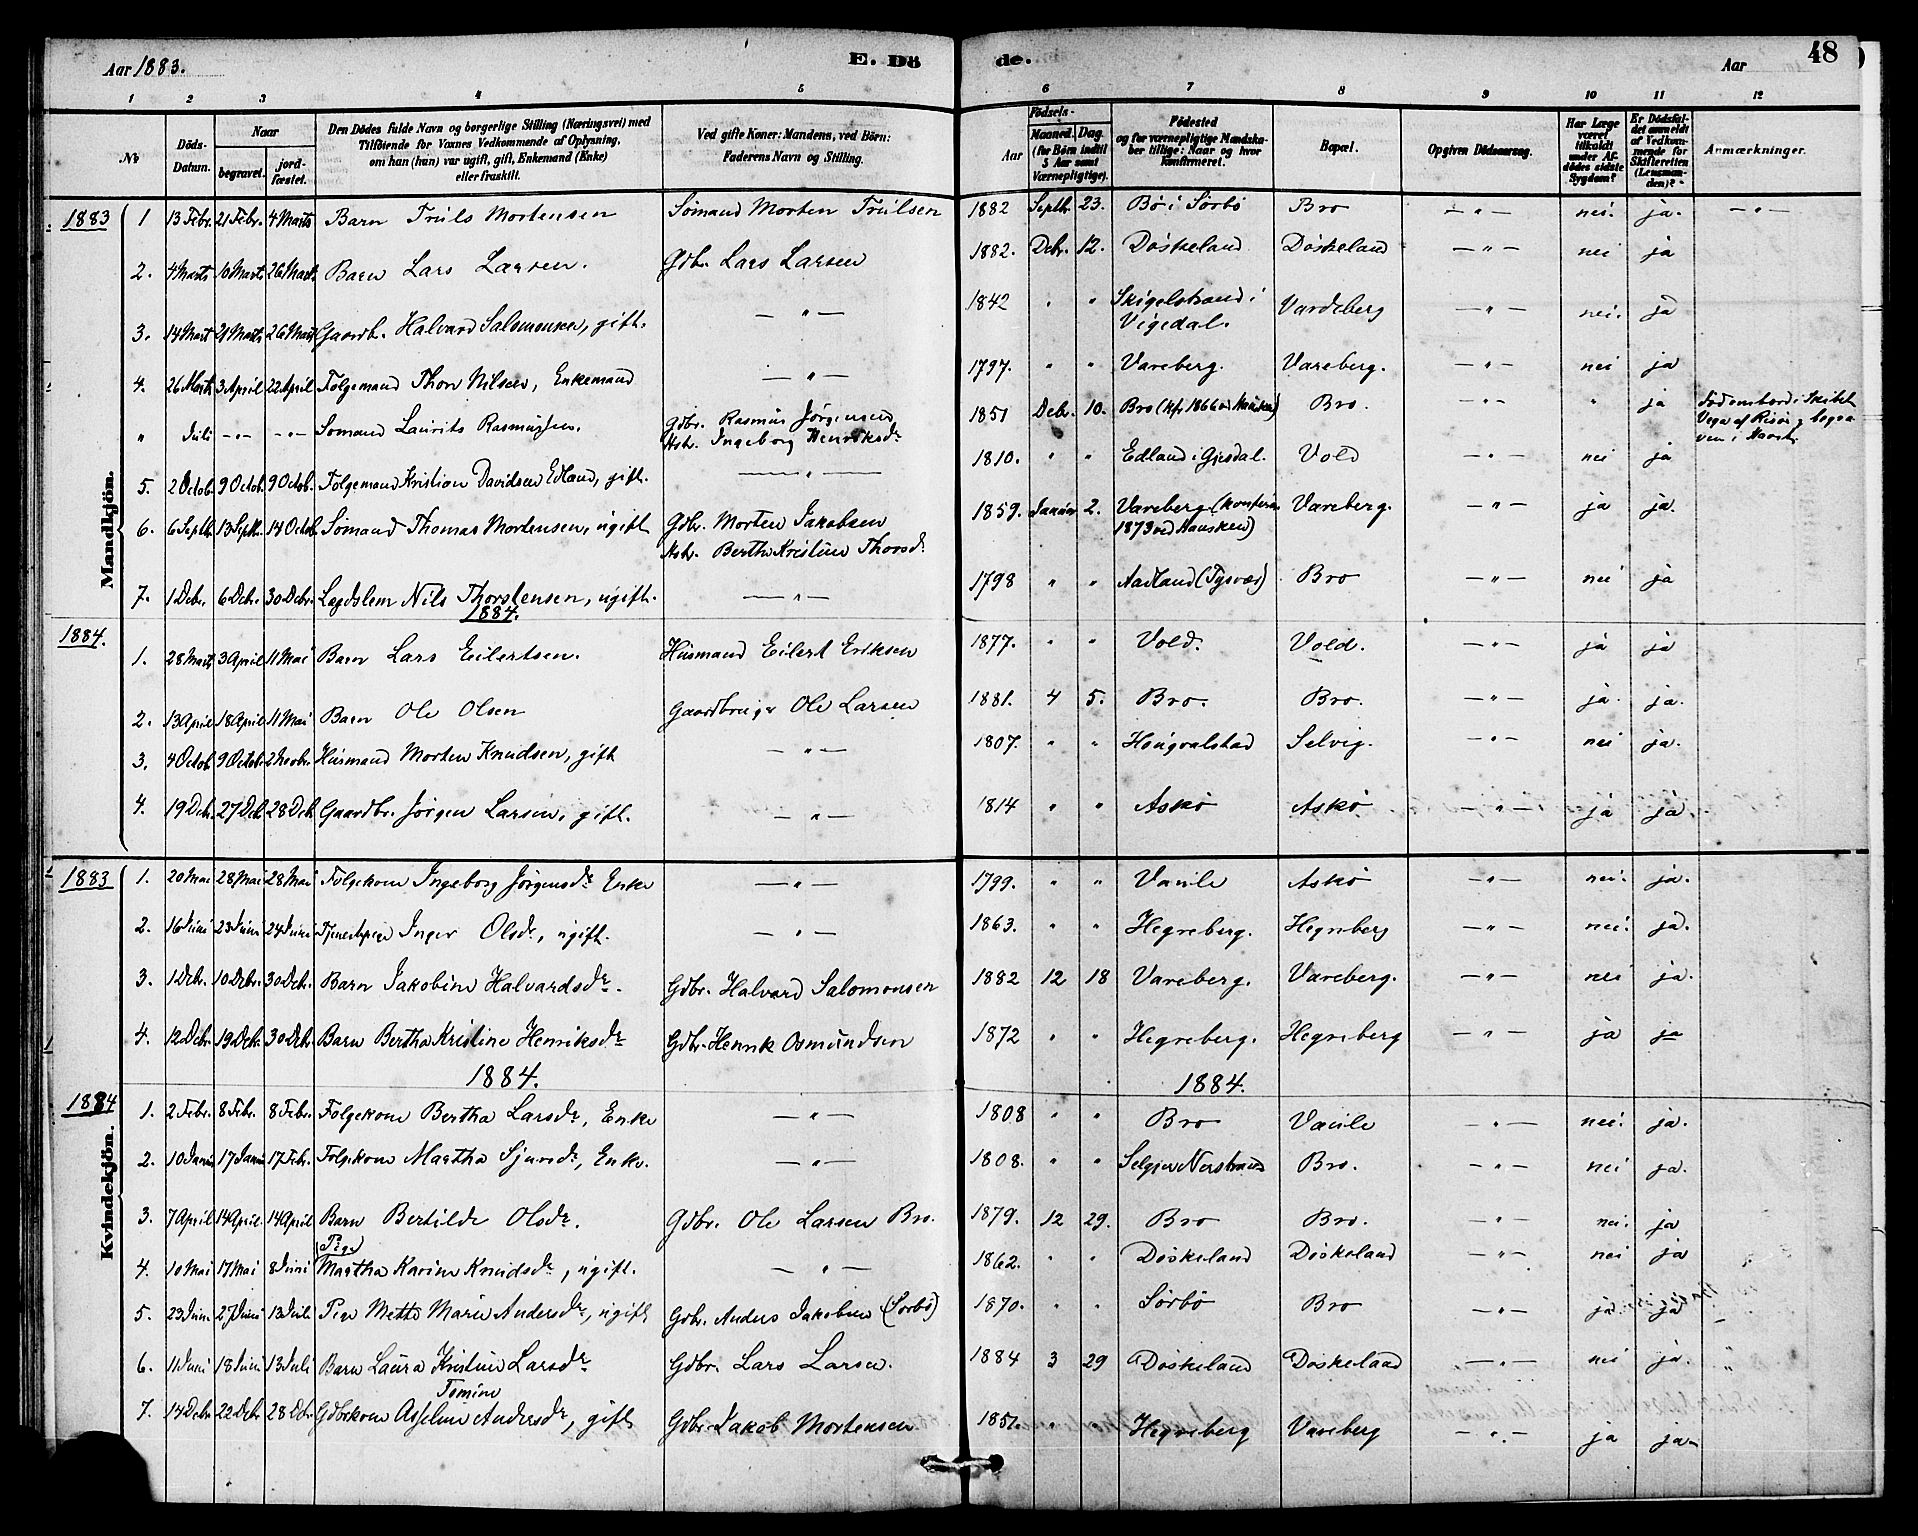 Aar 1883. E. Dö de. Aar 48
1 2 3 4 5 6 7 8 9 10 11 12
No Döds-Datum. Naar begravet. jordfæstet. Den Dödes fulde Navn og borgerlige Stilling (Næringsvei) med Tilföiende for Voxnes Vedkommende af Oplysning, om han (hun) var ugift, gift, Enkemand (Enke) eller fraskilt. Ved gifte Koner: Mandens, ved Börn: Faderens Navn og Stilling. Födsels- Aar Maaned. Dag. (for Börn indtil 5 Aar samt Værnepligtige). Födested og for værnepligtige Mandskaber tillige: Naar og hvor konfirmeret. Bopæl. Opgiven Dödsaarsag. Har Læge været tilkaldt under Afdödes sidste Sygdom? Er Dödsfaldet anmeldt af Vedkommende for Skifteretten (Lensmanden)? Anmærkninger.
Mandkjön.
1883 1 13 Febr. 21 Febr. 4 Marts Barn Truls Mortensen Sømand Morten Trulsen 1882 Septb 23. Bø i Sörbö Bro — " — nei. ja. — " —
2. 4 Marts 10 Marts 26 Marts Barn Lars Larsen. Gdbr. Lars Larsen 1882. Debr. 12. Döskeland Döskeland — " — nei ja
3. 14 Mart 21 Marts 26 Marts Gaardb. Halvard Salomonsen, gift. — " — 1842 " " Skigelstrand i Vigedal. Vardeberg — " — nei. ja
4. 26 Marts 3 April 22 April Folgemand Thor Nilsen, Enkemand — " — 1797. " " Vareberg. Vareberg. — " — nei ja
" Juli — " — — " — Sømand Laurits Rasmussen. Gdbr. Rasmus Jørgensen Hst. Ingeborg Henriksdr 1851 Debr. 10. Bro (kfr. 1866 ved Hausken) Bro. — " — " ja
5. 2 Octob. 9 Octob. 9 Octob. Folgemand Kristian Davidsen Edland, gift. — " — 1810. " " Edland i Gjesdal. Vold — " — nei ja
6. 6 Septb. 13 Septb. 14 Octob. Sømand Thomas Mortensen, ugift Gdbr. Morten Jakobsen Hst. Bertha Kristine Thorsd. 1859. Januar 2. Vareberg (konfirm 1873 ved Hausken) Vareberg. — " — ja ja.
7. 1 Debr. 6 Debr. 30 Debr. Lægdslem Nils Thorstensen, ugift. — " — 1798 " " Aadland (Tysvær) Bro — " — nei ja
1884.
1884. 1. 28 Mart 3 April 11 Mai Barn Lars Eilertsen. Husmand Eilert Eriksen 1877. " " Vold. Vold. — " — ja ja
2. 13 April 18 April 11 Mai Barn Ole Olsen Gaardbruger Ole Larsen 1881. 4 5. Bro. Bro. — " — ja. ja.
3. 4 Octob. 9 Octob. 2 Novbr. Husmand Morten Knudsen, gift — " — 1807. " " Hougvalstad Selvig. — " — nei ja.
4. 19 Debr. 27 Deb 28 Deb Gaardbr. Jørgen Larsen, gift. — " — 1814 " " Askø Askø — " — ja ja
Kvindekjön.
1883 1. 20 Mai 28 Mai 28 Mai Folgekone Ingeborg Jørgensdr Enke — " — 1799. " " Askø — " — nei. ja.
2. 16 Juni 23 Juni 24 Juni Tjenestepige Inger Olsdr, ugift. — " — 1863. " " Hegreberg. Hegreberg — " — nei. ja.
3. 1 Debr. 10 Debr. 30 Debr. Barn Jakobine Halvardsdr. Gdbr. Halvard Salomonsen 1882 12 18 Vareberg. Vareberg. — " — nei ja.
4. 12 Debr. 19 Deb. 30 Debr. Barn Bertha Kristine Henriksdr Gdbr. Henrik Osmundsen 1872 " " Hegreberg. Hegreberg — " — ja ja
1884. 1884.
1884 1. 2 Febr. 8 Febr. 8 Febr. Folgekone Bertha Larsdr, Enke — " — 1808 " " Bro — " — nei. ja.
2. 10 Januar 17 Januar 17 Febr. Folgekone Martha Sjursdr, Enke. — " — 1808. " " Bro. — " — nei ja.
3. 7 April 14 April 14 April Barn Bertilde Olsdr. Gdbr. Ole Larsen Bro. 1879. 12 29. Bro Bro. — " — nei. ja
4. 10 Mai 17 Mai 8 Juni Pige Martha Karine Knudsdr, ugift. — " — 1862. " " Döskeland Döskeland — " — nei ja
5. 23 Juni 27 Juni 13 Juli Pige Mette Marie Andersdr, ugift Gdbr. Anders Jakobsen (Sørbø) 1870. " " Sørbø Bro — " — ja. ja
6. 11 Juni 18 Juni 13 Juli Barn Laura Kristine Larsdr Gdbr. Lars Larsen. 1884 3 29 Döskeland Döskeland — " — nei ja.
7. 14 Debr 22 Debr 28 Debr Gdbrkone Asseline Tomine Andersdr, gift Gdbr. Jakob Mortensen 1851. " " Hegreberg Vareberg — " — ja ja